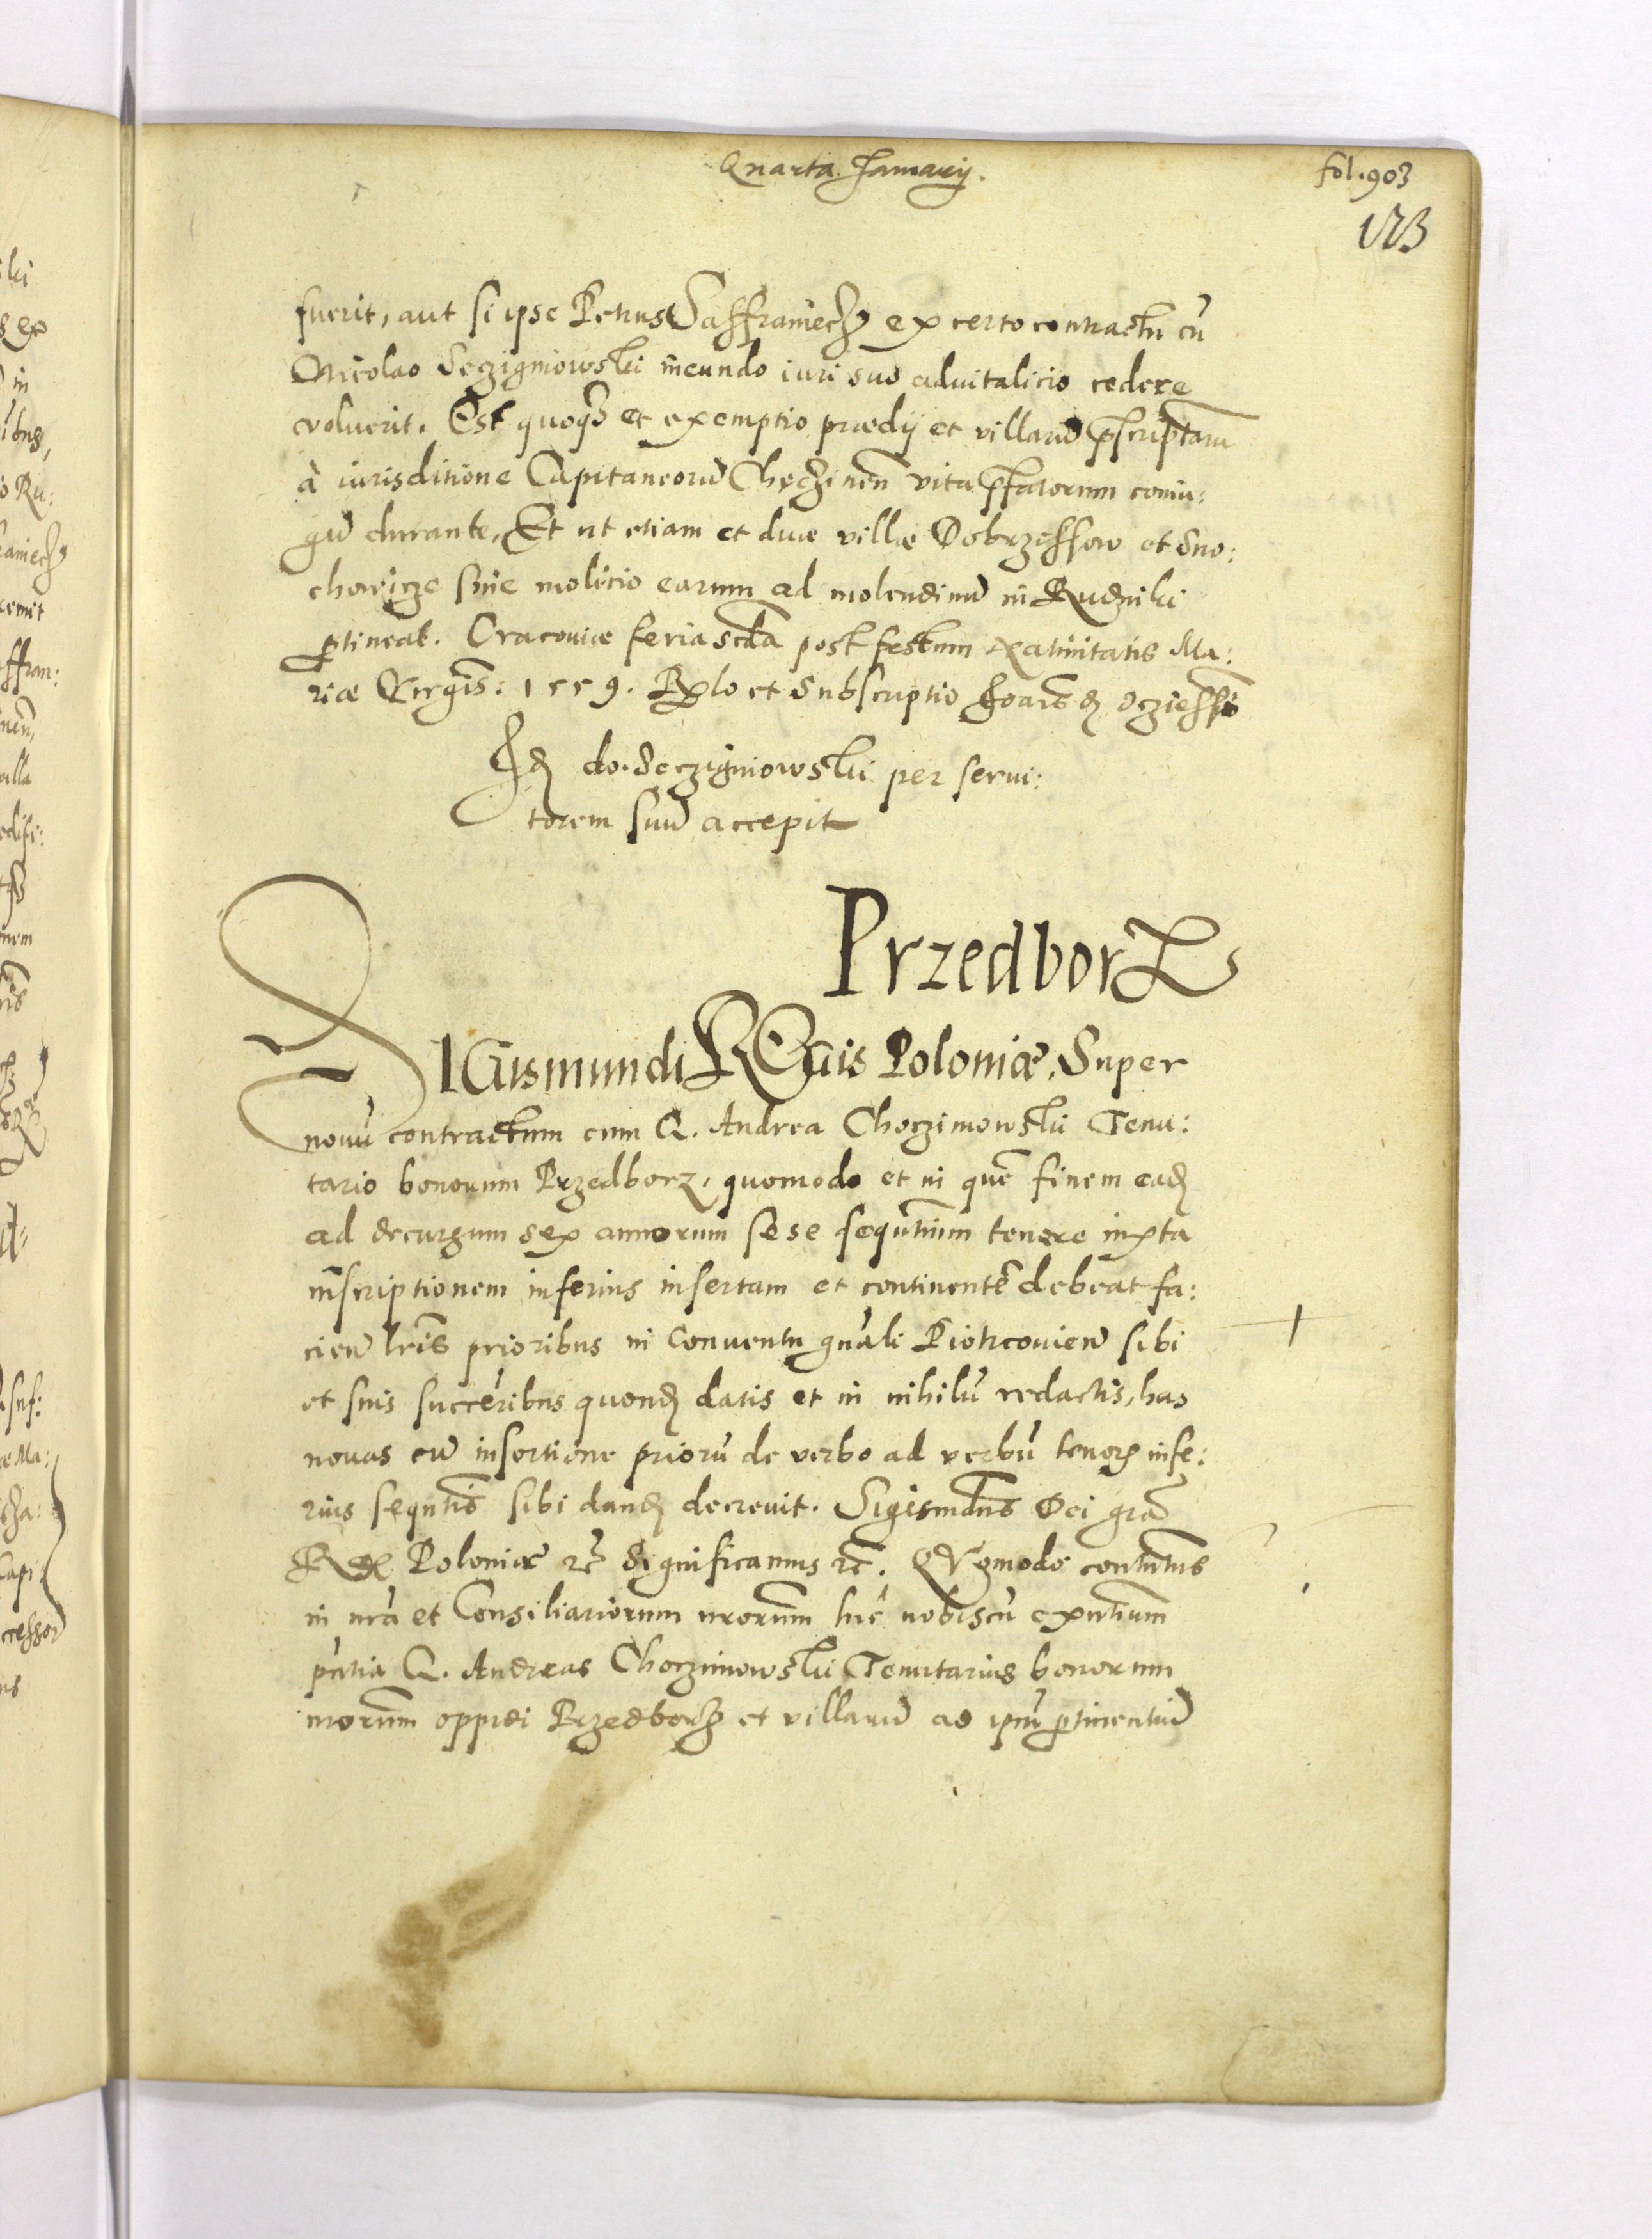 Quarta Januarij.
fol. 903
173
fuerit, aut si ipse Petrus Saffraniecz ex certo contractu cū
Nicolao Seczigniowski ineundo iuri suo aduitalicio cedere
voluerit. Est quoq3 et exemptio prædij et villarū p̄scriptarū
à iurisditione Capitaneorū Chęczinēn vita p̄fatorum coniu:
gū durante, Et ut etiam et duæ villæ Dobrzessow et Sno:
chowicze siue molitio earum ad molendinū in Rudniki
ptineat. Cracouiæ feria scda post festum Natiuitatis Ma:
riæ Virgīs: 1559. Rlo et Subscriptio Joaīs d Ocziessi
Id do. Seczigniowski per serui:
torem suū accepit
Przedborz
SIGismundi REGis Poloniæ, Super
nouū contractum cum G. Andrea Choczimowski Tenu:
tario bonorum Przedborz, quomodo et in quē finem ead
ad decursum sex annorum sese sequn̄tium tenere iuxta
inscriptionem inferius insertam et continentē debeat fa:
cien̄ lris prioribus in Conuentu gnali Piotrcouien̄ sibi
et suis succeribus quond datis et in nihilū redactis, has
nouas cū insertione priorū de verbo ad verbū tenore infe:
rius sequtīs sibi dand decreuit. Sigismdus Dei gra
Rex Poloniæ rc Significamus rc. QVomodo constitutus
in nra et Consiliariorum nrorum hic nobiscū exntium
pntia G. Andreas Choczimowski Tenutarius bonorum
nrorum oppidi Przedborz et villarū ad ipm ptinentiū